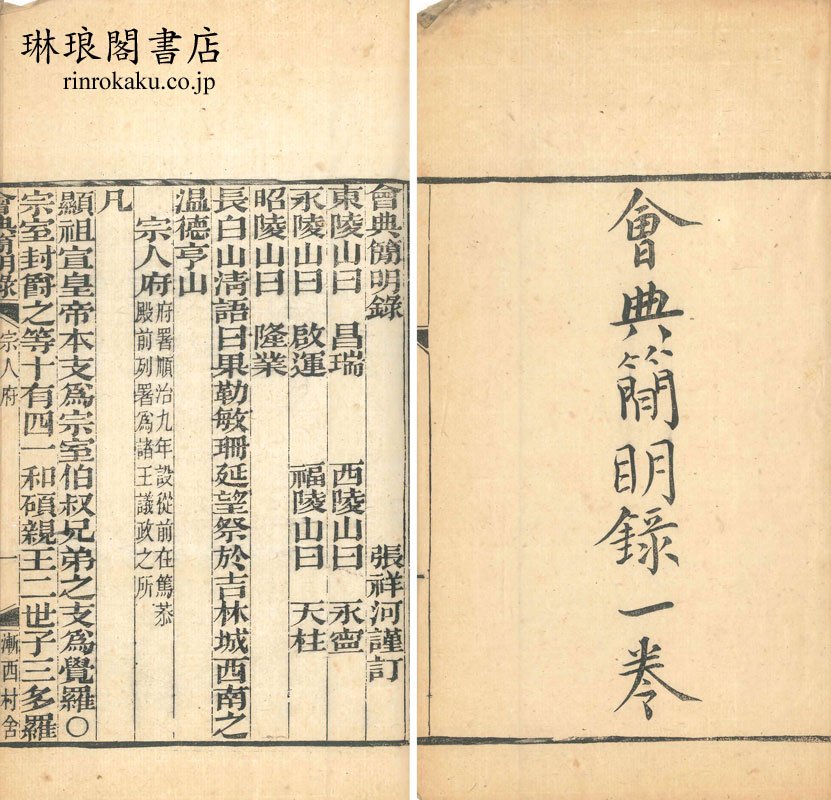 琳琅閣書店
rinrokaku.co.jp
會典簡明錄一卷
會典簡明錄 張祥河謹訂
東陵山曰 昌瑞 西陵山曰 永寧
永陵山曰 啟運 福陵山曰 天柱
昭陵山曰 隆業
長白山清語曰果勒敏珊延望祭於吉林城西南之
溫德亨山
宗人府 府署順治九年設從前在篤恭
殿前列署為諸王議政之所
凡
顯祖宣皇帝本支爲宗室伯叔兄弟之支爲覺羅〇
宗室封爵之等十有四一和碩親王二世子三多羅
會典簡明錄 宗人府 一 漸西村舍